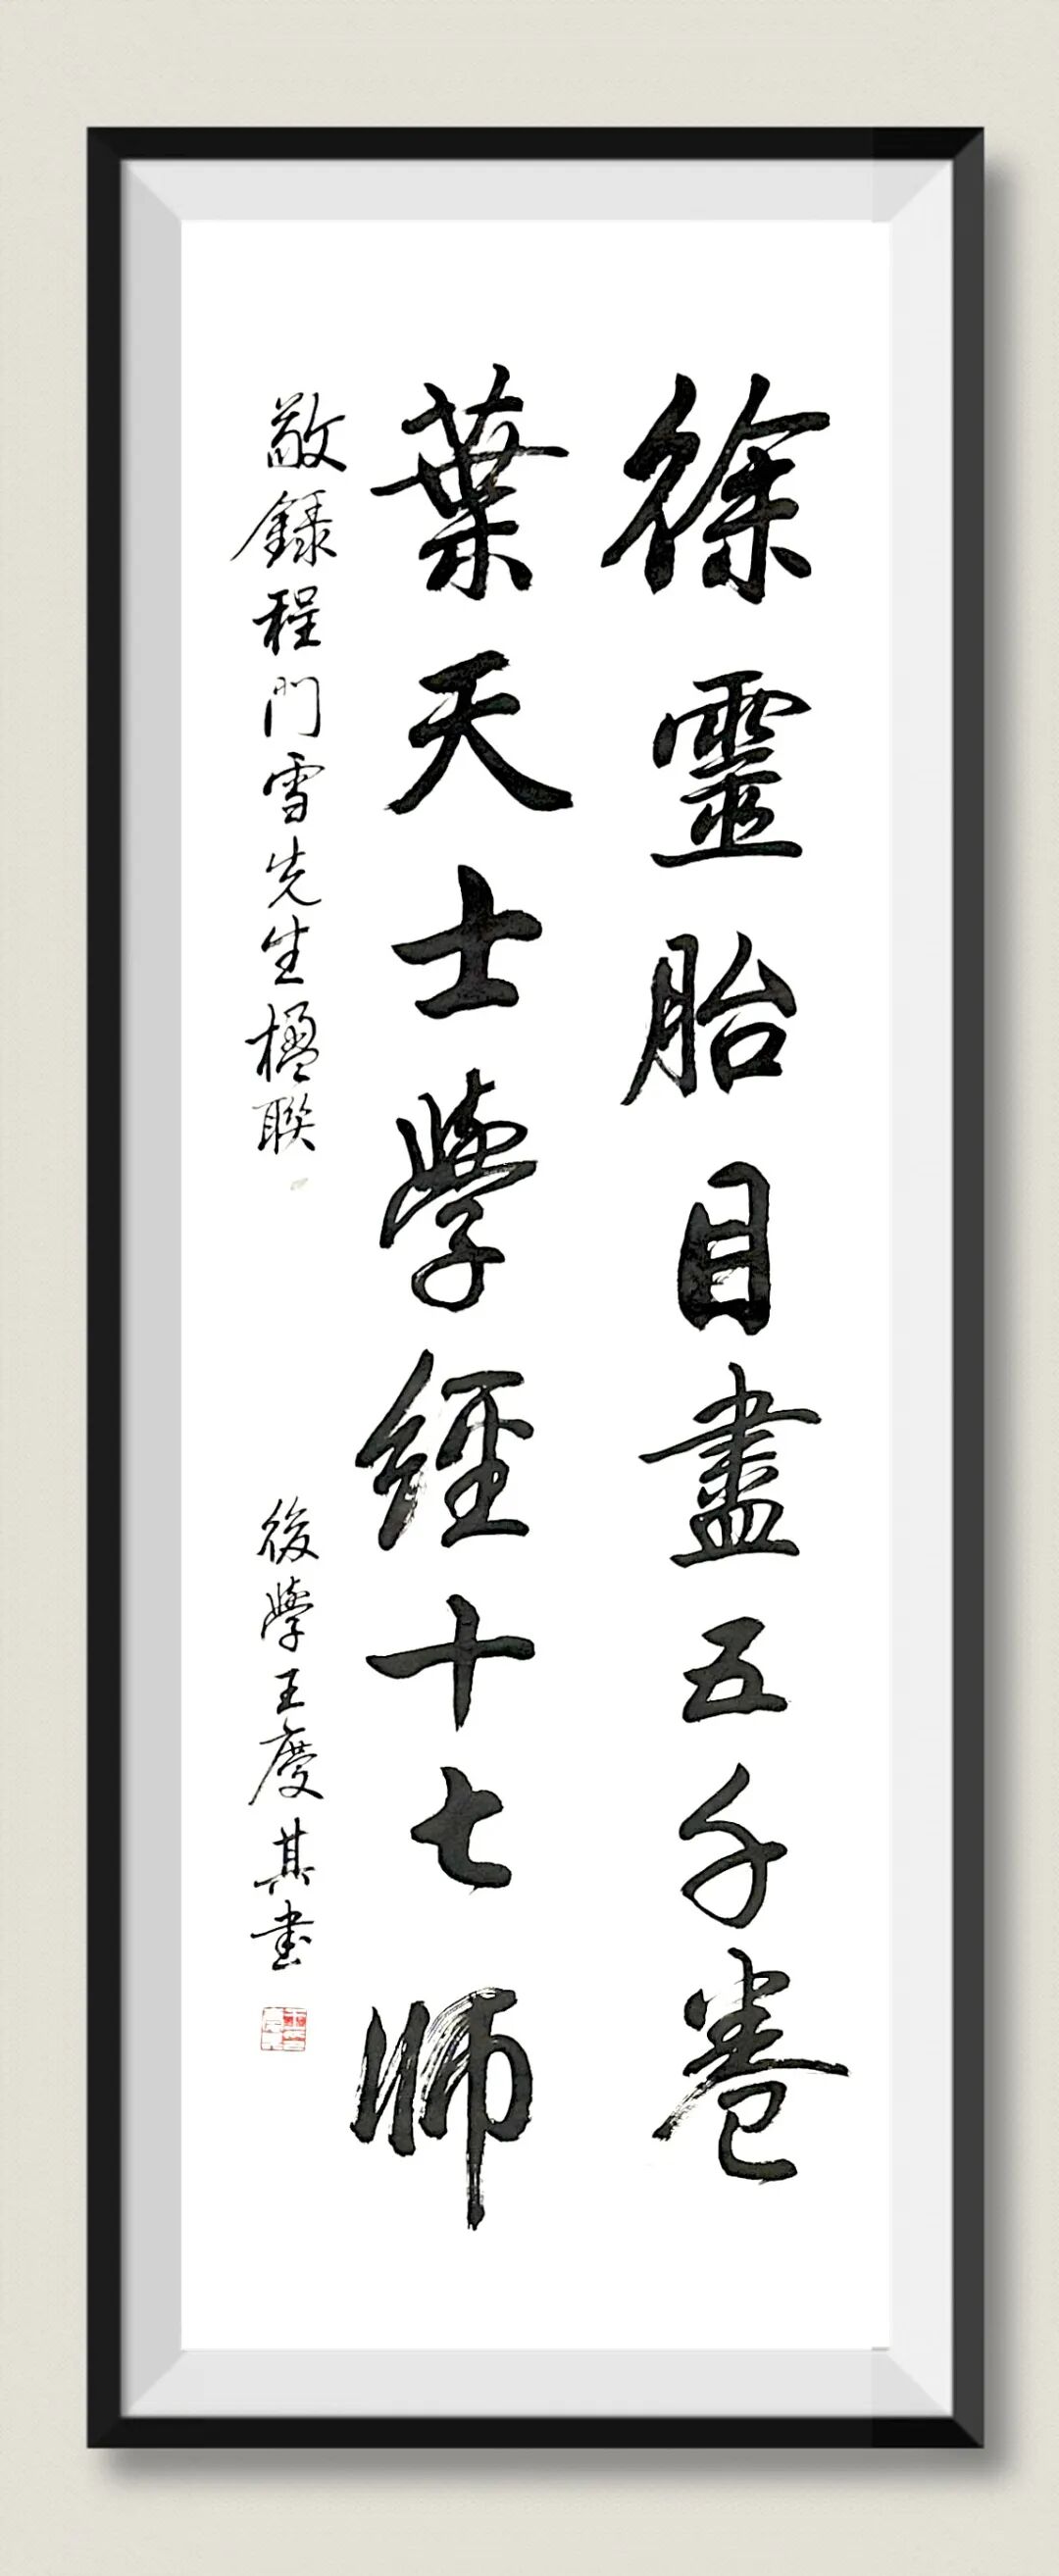 徐靈胎目盡五千卷
葉天士學經十七師
敬錄程門雪先生楹聯
後學王慶其書